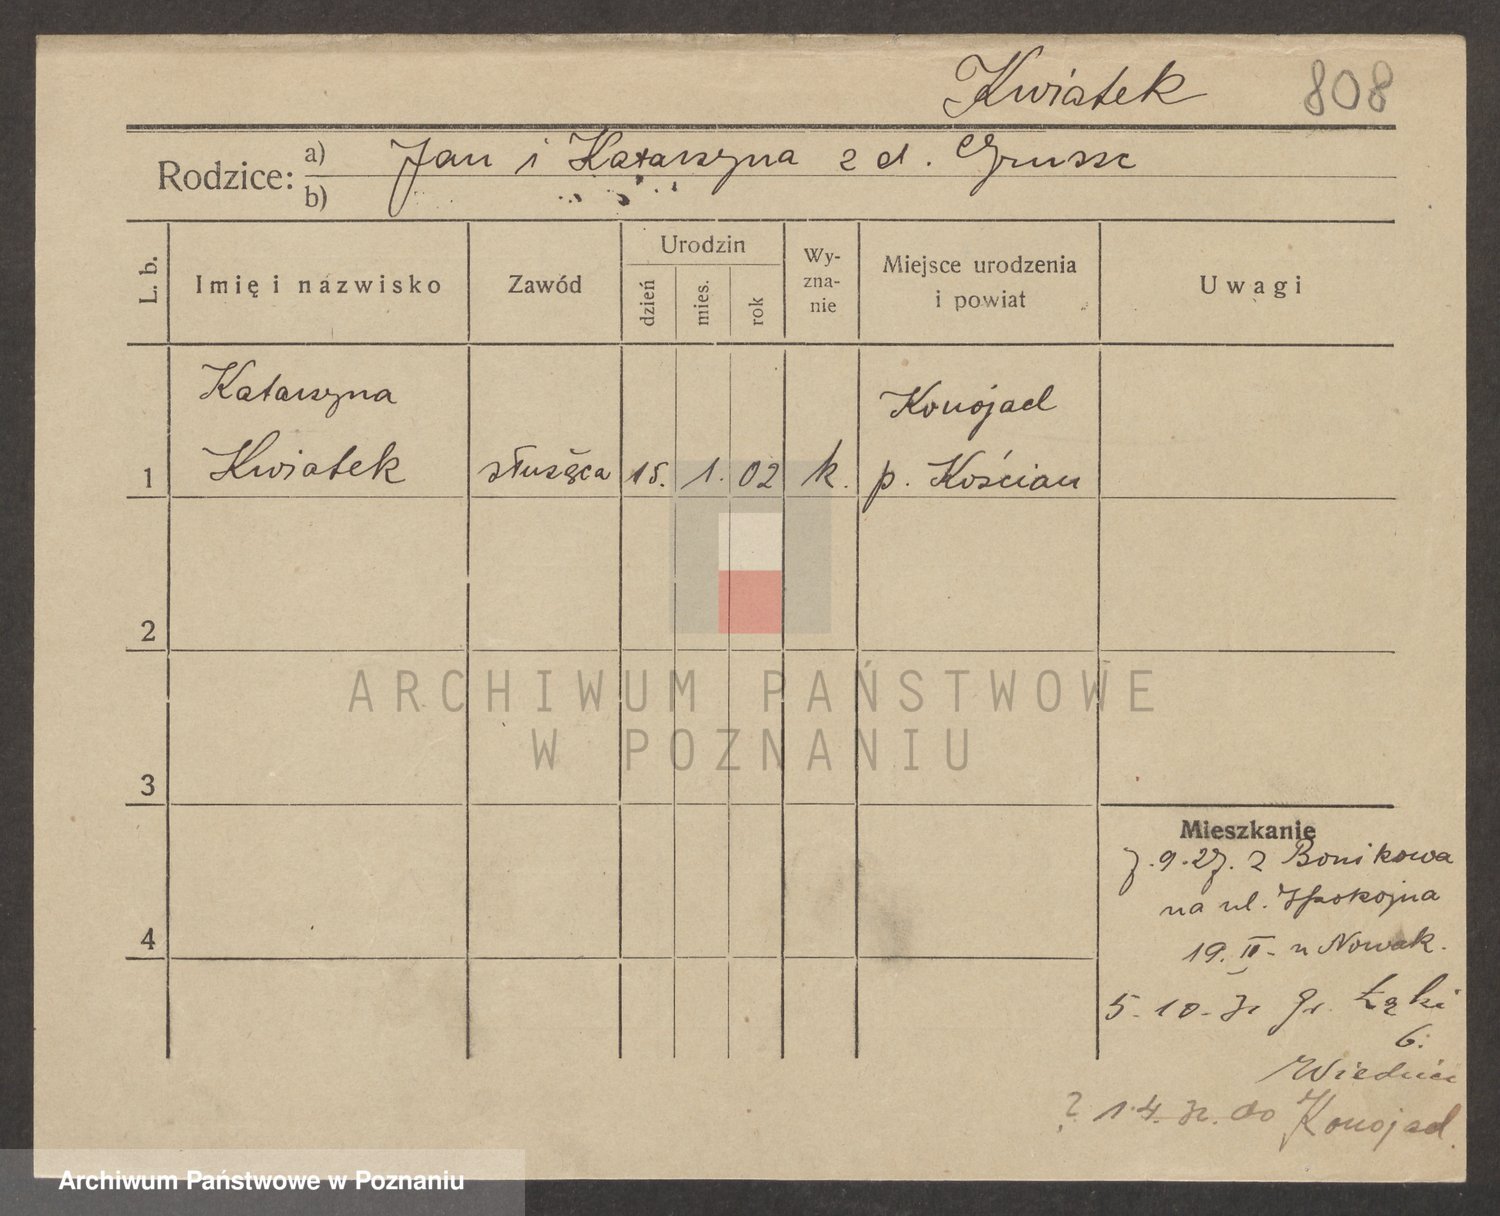 Kwiatek 808
Rodzice: a) Jan i Katarzyna z d. Grusse
b)
L. b. Imię i nazwisko Zawód Urodzin dzień mies. rok Wy-zna-nie Miejsce urodzenia i powiat Uwagi
Katarzyna Konojad
1 Kwiatek służąca 15. 1. 02 k. p. Kościan
2
ARCHIWUM PAŃSTWOWE
W POZNANIU
3
Mieszkanie
7.9.27. z Bonikowa
na ul. Spokojna
4
19. II. u Nowak.
5.10. Gr. Łąki
6.
1.4. do Konojad.
Archiwum Państwowe w Poznaniu